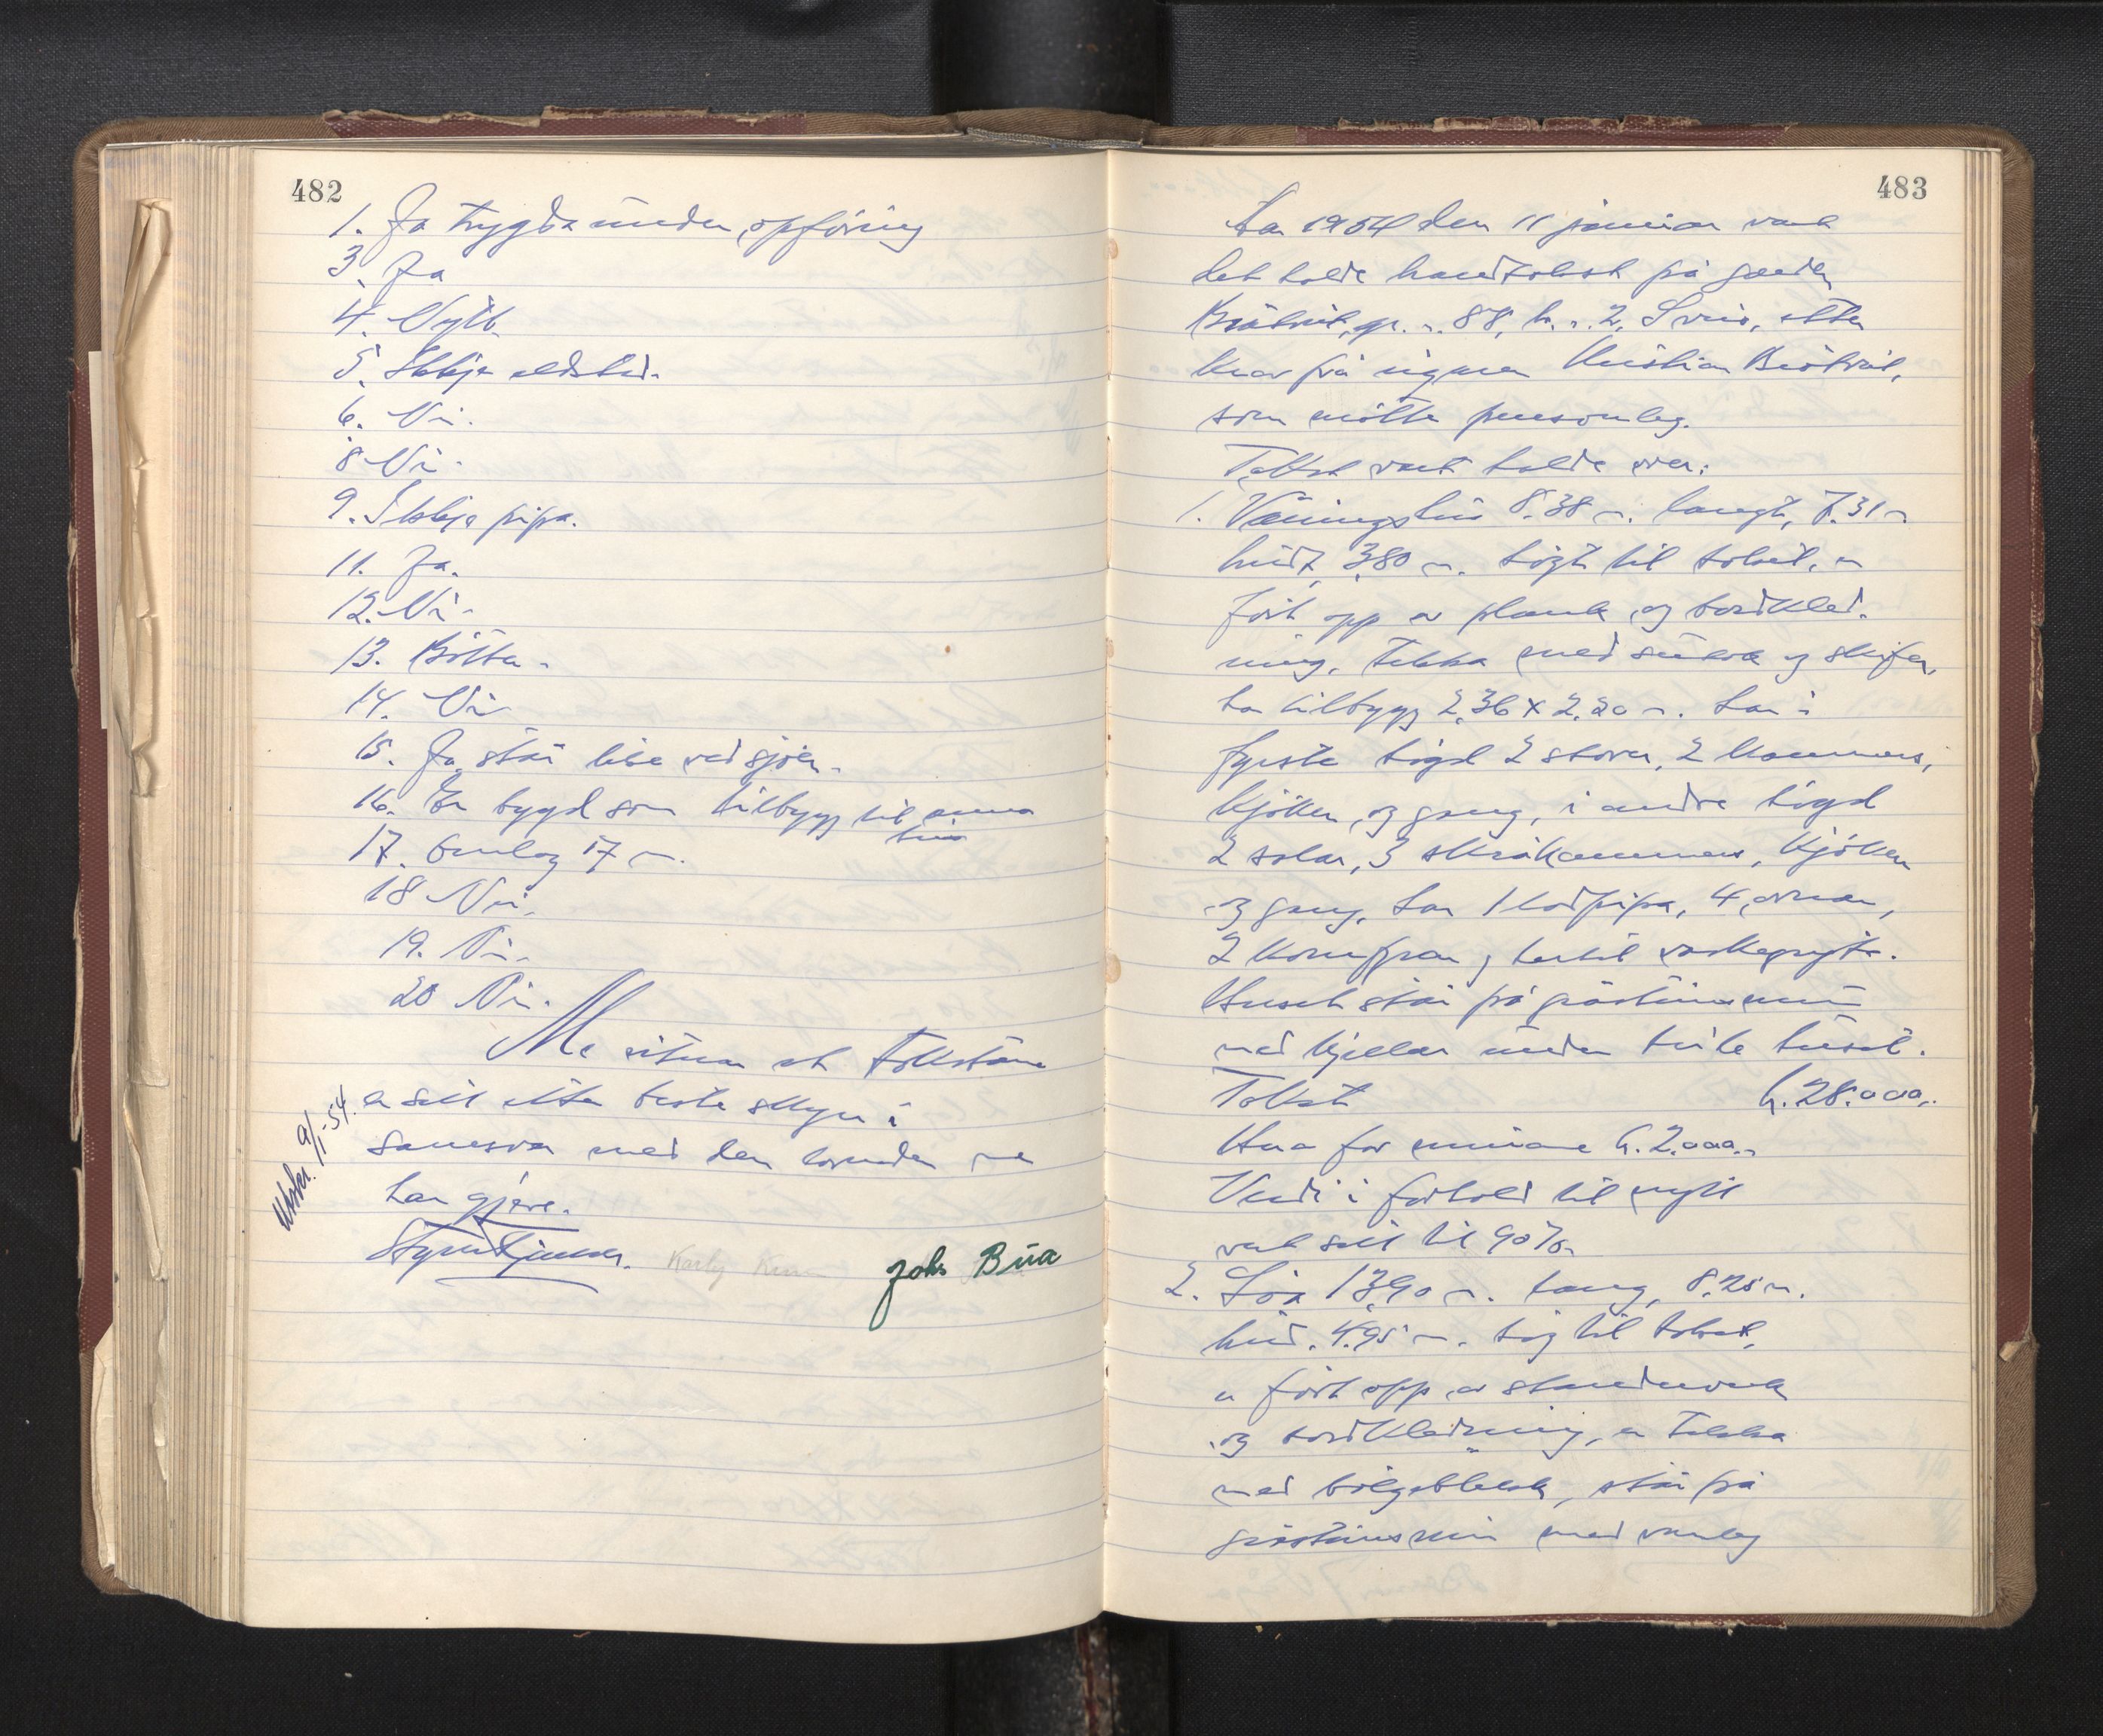 482
1. Ja trygda under oppföring
3. Ja
4. Nytt.
5. Ikkje eldstad.
6. Nei.
8 Nei.
9. Ikkje pipa.
11. Ja.
12. Nei.
13. Böttu.
14. Nei
15. Ja, står like ved sjøen.
16. Er bygd som tilbygg til anna
hus
17. Omlag 17 m.
18 Nei.
19. Nei.
20 Nei.
Me vitnar at takstane
er sett etter beste skyn i
samsvar med den lovnaden me
har gjeve.
Utskr. 9/1-54.
Karly
Johs Bua
483
Aar 1954 den 11 januar vart
det halde brandtakst på garden
gr. n. 88, br. n. 2, etter
krav frå eigaren Kristian
som møtte personleg.
Takst vart halde over:
1. Våningshus 8.38 m. langt, 7.31 m
breidt, 3,80 m. högt til taket, er
fört opp av plank og bordkled-
ning, tekka med og skifer,
har tilbygg 2,36 x 2,20 m. har i
fyrste högd 2 stover, 2 kammers,
kjöken, og gang, i andre högd
2 salar, 3 skråkammers, kjöken
og gang, har 1 lodpipa, 4 omnar,
2 komfyrar, vaskegryte.
Huset står på gråsteinsmur
med kjellar under heile huset.
Takst kr. 28.000,-
Herav for murane kr. 2.000.-
Verdi i forhold til nytt
vart sett til 90%
2. Löa 13,90 m. lang, 8.25 m.
breid. 4.95 m. høg til taket,
er fört opp av standarverk
og bordkledning, er tekka
med bölgeblekk, står på
gråsteinsmur med vanleg